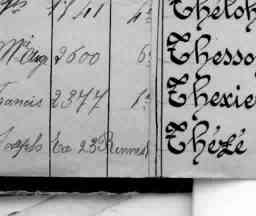 1741 4e Théloh
Mie Auge 2600 6e Thesso
Francis 2377 1e Thexie
Joseph Ex 23 Rennes Thézé